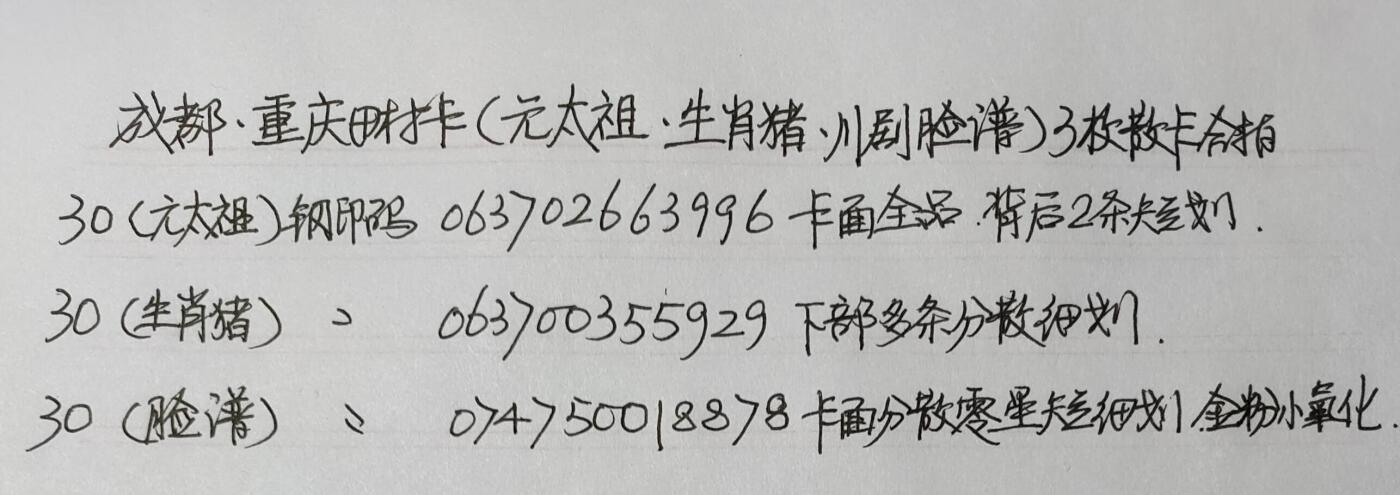 成都·重庆田村卡(元太祖·生肖猪·川剧脸谱)3枚散卡合拍
30(元太祖)钢印码 063702663996 卡面全品.背后2条短划.
30(生肖猪) 〃 063700355929 下部多条分散细划.
30(脸谱) 〃 074750018878 卡面分散零星短细划.金粉小氧化.